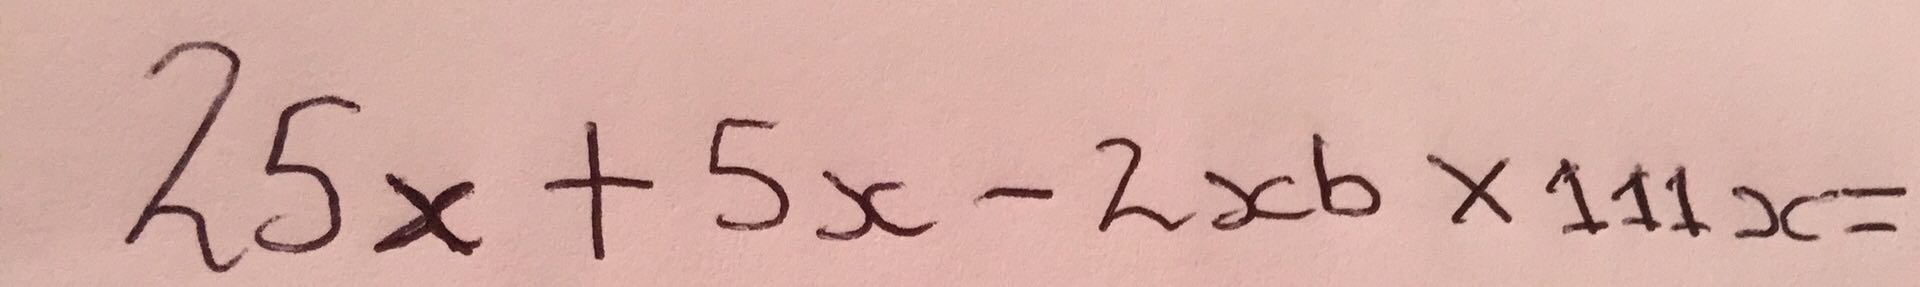 25x + 5x - 2xb × 111x =